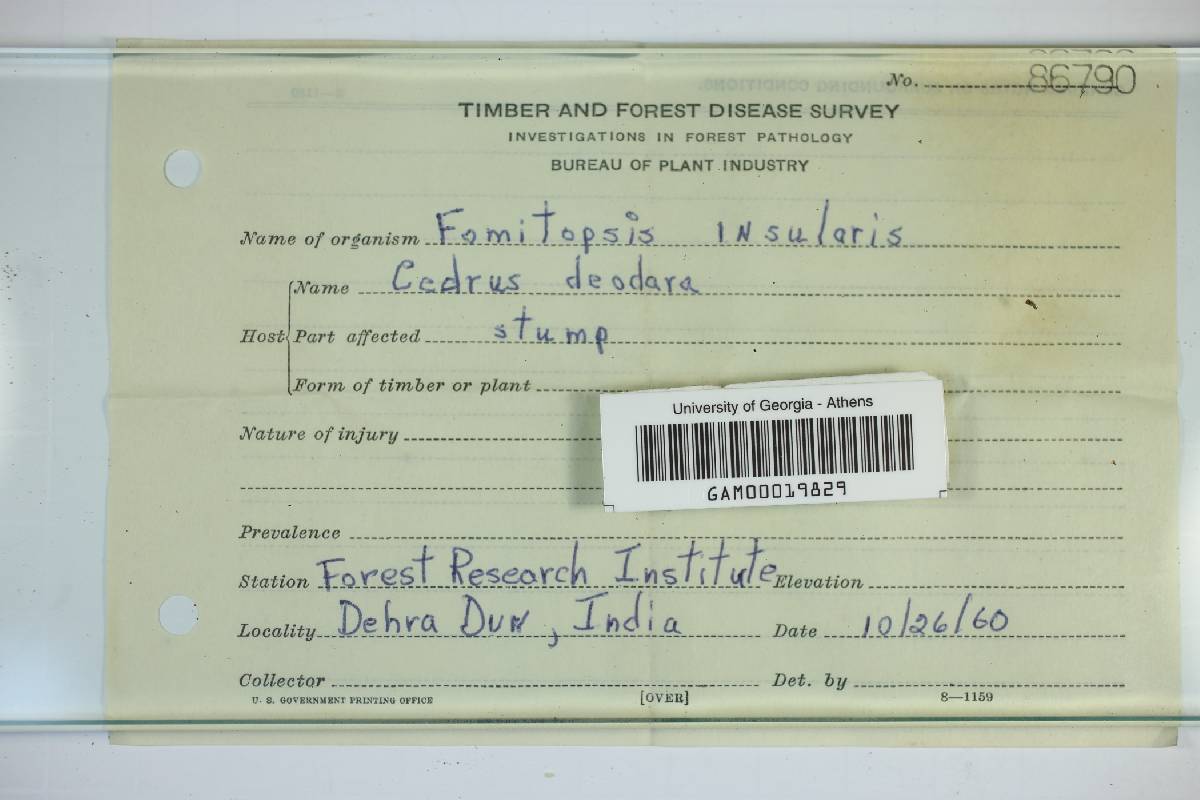 No. 86790
TIMBER AND FOREST DISEASE SURVEY
INVESTIGATIONS IN FOREST PATHOLOGY
BUREAU OF PLANT INDUSTRY
Name of organism Fomitopsis insularis
Name Cedrus deodara
Host Part affected stump
Form of timber or plant
University of Georgia - Athens
Nature of injury
GAM00019829
Prevalence
Station Forest Research Institute Elevation
Locality Dehra Dun, India Date 10/26/60
Collector Det. by
U. S. GOVERNMENT PRINTING OFFICE [OVER] 8—1159